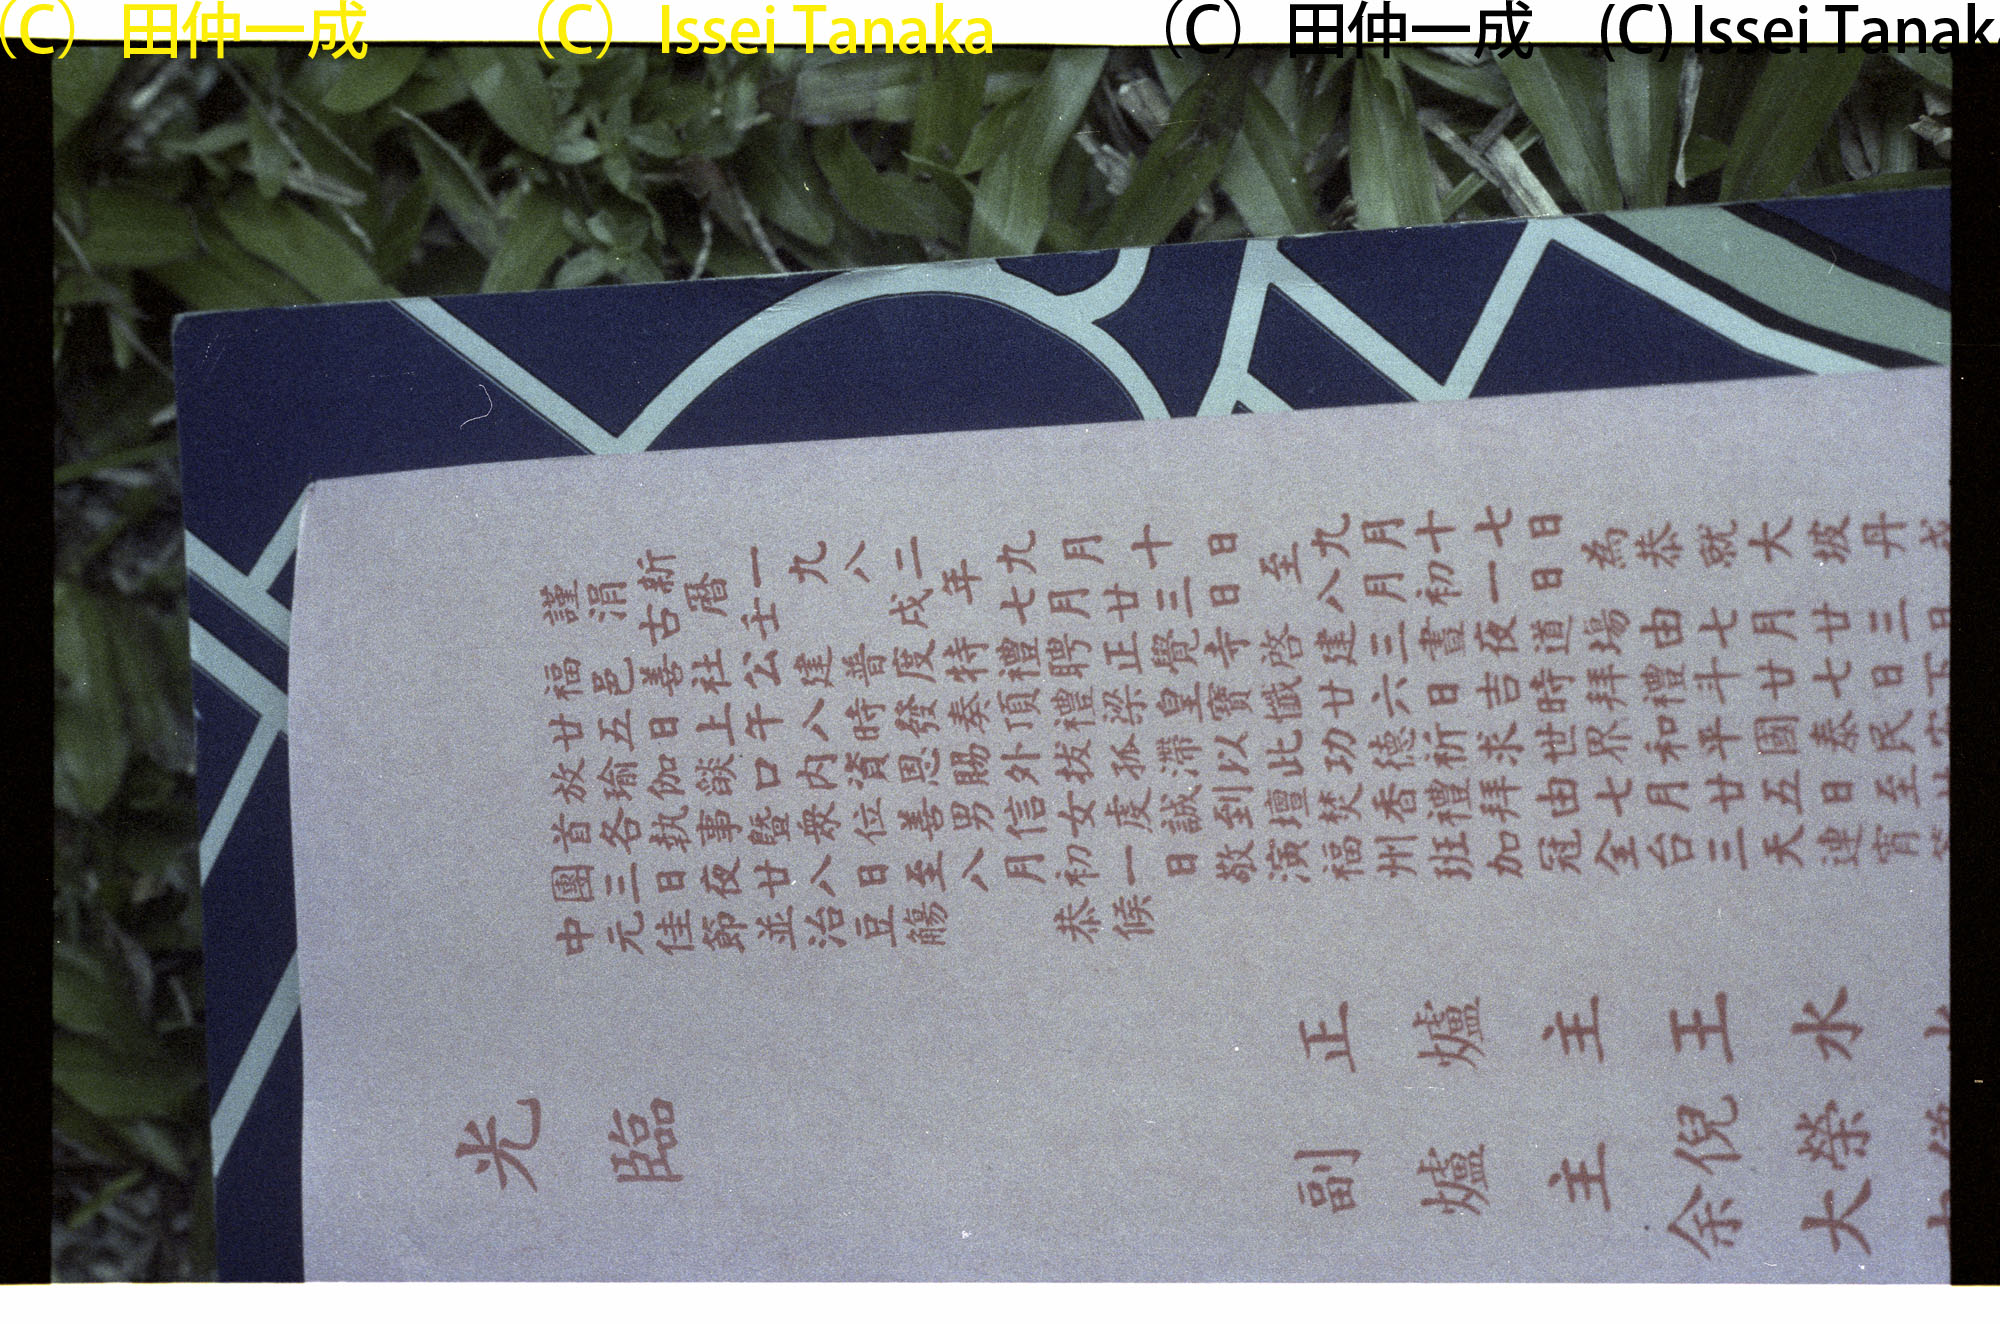 (C) 田仲一成 (C) Issei Tanaka (C) 田仲一成 (C) Issei Tanak
謹涓
新曆一九八二年九月十日至九月十七日
古壬戌七月廿三日八月初一日
為恭就大坡丹戎
福邑善社公建普度特禮聘正覺寺啓建三晝夜道場由七月廿三日
廿五日上午八時發奏頂禮梁皇寶懺廿六日吉時拜禮斗廿七日下
放瑜伽燄口內資恩賜外拔孤滯以此功德祈求世界和平國泰民安
首各執事暨衆位善男信女度誠到壇焚香禮拜由七月廿五日至
團三日夜廿八日至八月初一日敬演福州班加冠全台三天連宵
中元佳節並治豆觴 恭候
光臨
正爐主 王水
副爐主 倪榮
余大